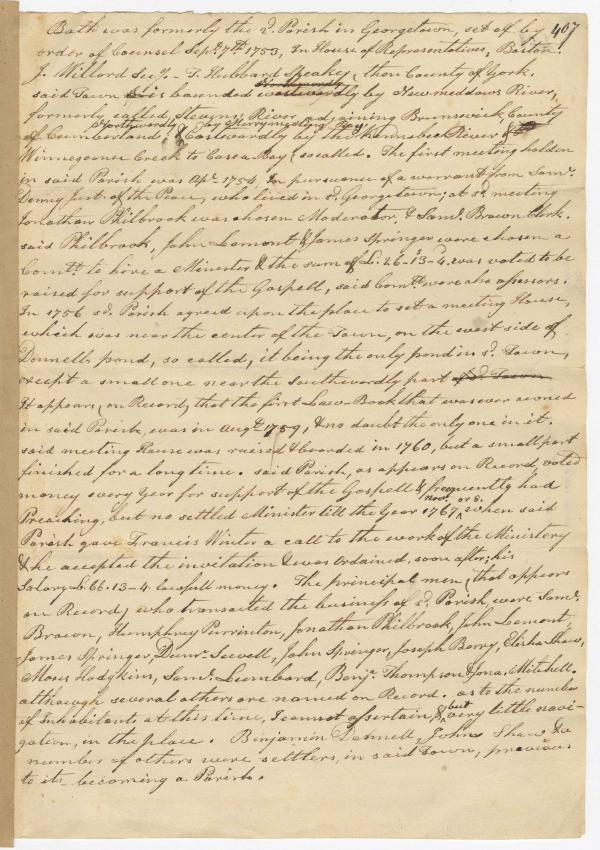 407
Bath was formerly the 2d. Parish in Georgetown, set of by
order of Counsel Sept. 7th 1753, In House of Representatives, Boston
J. Willord Secy. - T. Hubbard Speaker, then County of York.
said Town is bounded Northwardly westwardly by New meddows River,
formerly called Stevens River, adjoining Brunswick, County
of Cumberland; Northwardly by Merrymeeting Bay; Eastwardly by the Kennebec River &
Winnegance Creek to Casco Bay, so called. The first meeting holden
in said Parish was Apl. 1754, In pursuance of a warrant from Saml.
Denny Just. of the Peace, who lived in sd. Georgetown; at sd. meeting
Jonathan Philbrook was chosen Moderator, & Saml. Brown Clerk.
said Philbrook, John Lemont & James Springer were chosen a
Comtt. to hire a Minester & the sum of L. 26-13-4. was voted to be
raised for support of the Gospell, said Comtt. were also assessors.
In 1756 sd. Parish agreed upon the place to set a meeting House,
which was near the center of the Town, on the west side of
Donnells pond, so called, it being the only pond in sd. Town,
except a small one near the Southwardly part of sd. Town
It appears, on Record, that the first Law-Book that was ever owned
in said Parish, was in Augt. 1759, & no doubt the only one in it.
said meeting House was raised & boarded in 1760, but a small part
finished for a long time. said Parish, as appears on Record, voted
money every Year for support of the Gospell & frequently had
Preaching, but no settled Minister till the Year 1767, or 8. when said
Parish gave Francis Winter a call to the work of the Ministery
& he accepted the invitation & was Ordained, soon after; his
Salary L. 66.13-4 lawfull money. The principal men, that appears
on Record, who transacted the business of sd. Parish, were Saml.
Brown, Humphrey Purrinton, Jonathan Philbrook, John Lemont,
James Springer, Dumr. Sewell, John Springer, Joseph Berry, Elisha Shaw,
Moses Hodgkins, Saml. Lumbard, Benja. Thompson & Jona. Mitchell.
although several others are named on Record. as to the number
of Inhabitants at this time, I cannot assertain, & but very little navi-
gation, in the place. Benjamin Donnell, John Shaw &
numbers of others were settlers, in said Town, previous
to its becoming a Parish.